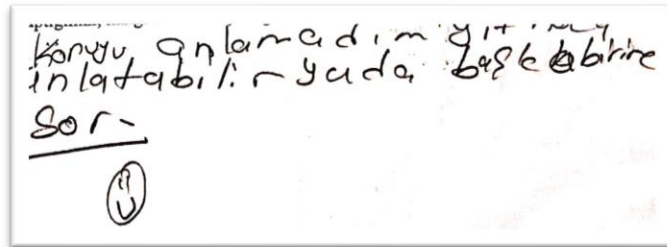 Konuyu anlamadım
inlatabilir yada başka birine
Sor-